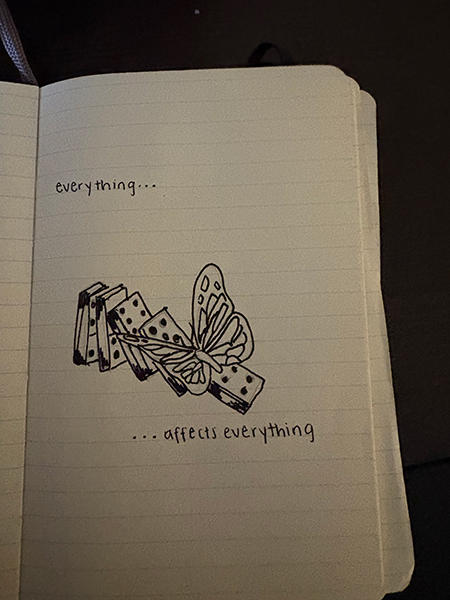 everything...
...affects everything